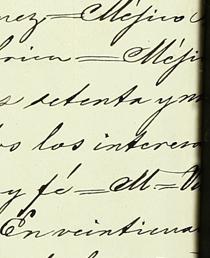 nez = Méjico
rica = Méji
s setenta y nu
os los interesa
y fé = M = V
En veinticua